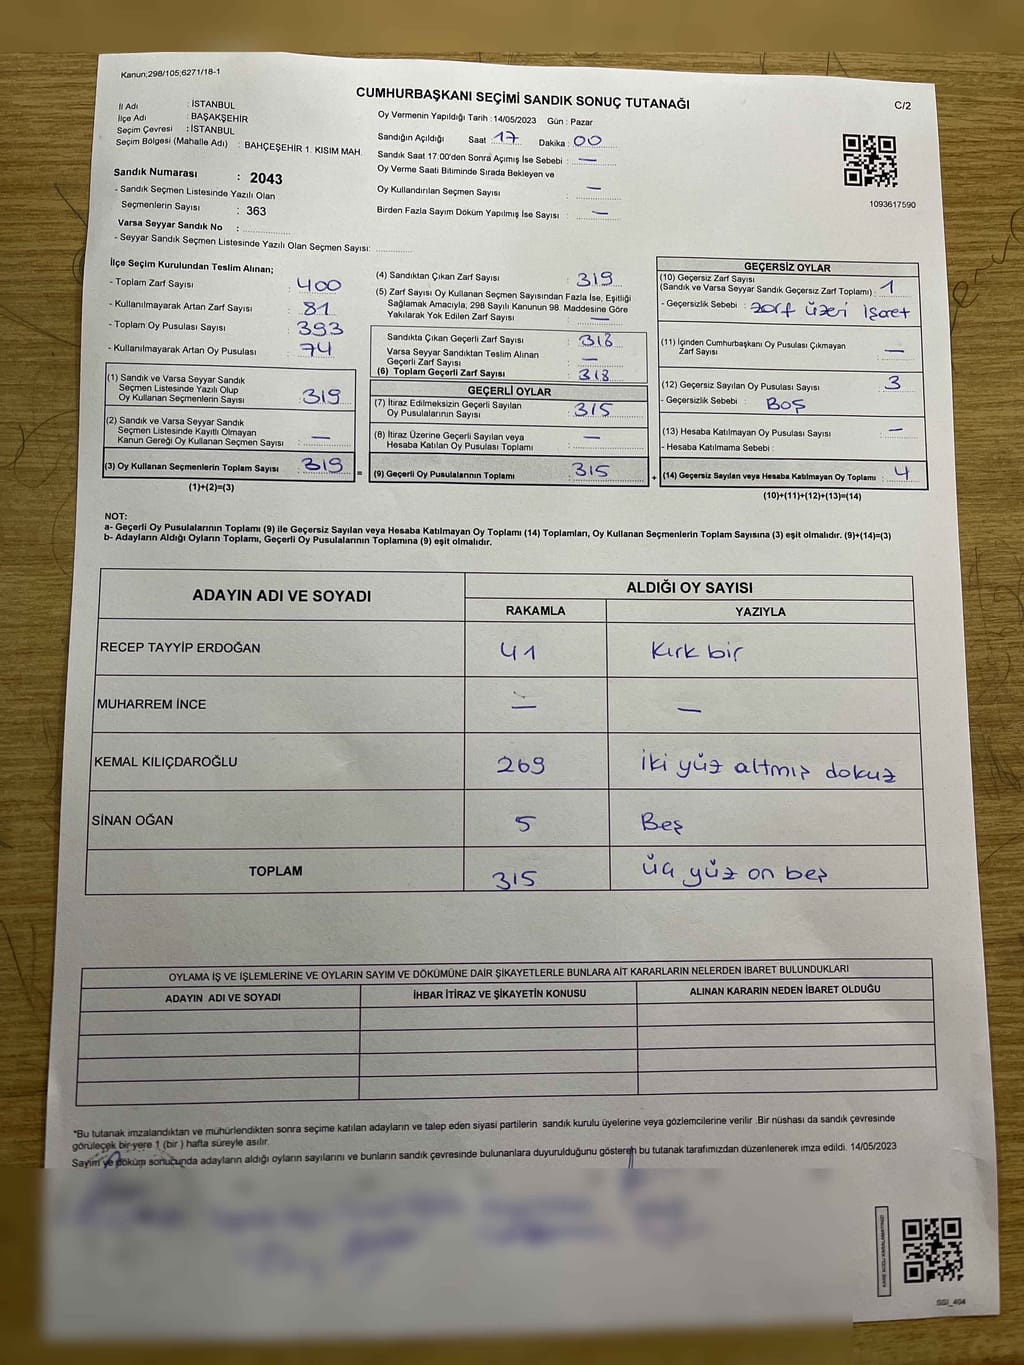 Kanun;298/105;6271/18-1
CUMHURBAŞKANI SEÇİMİ SANDIK SONUÇ TUTANAĞI
C/2
İl Adı : İSTANBUL
İlçe Adı : BAŞAKŞEHİR
Seçim Çevresi : İSTANBUL
Seçim Bölgesi (Mahalle Adı) : BAHÇEŞEHİR 1. KISIM MAH.
Sandık Numarası : 2043
- Sandık Seçmen Listesinde Yazılı Olan
Seçmenlerin Sayısı : 363
Varsa Seyyar Sandık No :
- Seyyar Sandık Seçmen Listesinde Yazılı Olan Seçmen Sayısı:
Oy Vermenin Yapıldığı Tarih : 14/05/2023 Gün : Pazar
Sandığın Açıldığı Saat : 17 Dakika : 00
Sandık Saat 17.00'den Sonra Açımış İse Sebebi : —
Oy Verme Saati Bitiminde Sırada Bekleyen ve
Oy Kullandırılan Seçmen Sayısı : —
Birden Fazla Sayım Döküm Yapılmış İse Sayısı : —
1093617590
İlçe Seçim Kurulundan Teslim Alınan;
- Toplam Zarf Sayısı : 400
- Kullanılmayarak Artan Zarf Sayısı : 81
- Toplam Oy Pusulası Sayısı : 393
- Kullanılmayarak Artan Oy Pusulası : 74
(1) Sandık ve Varsa Seyyar Sandık
Seçmen Listesinde Yazılı Olup
Oy Kullanan Seçmenlerin Sayısı : 319
(2) Sandık ve Varsa Seyyar Sandık
Seçmen Listesinde Kayıtlı Olmayan
Kanun Gereği Oy Kullanan Seçmen Sayısı : —
(3) Oy Kullanan Seçmenlerin Toplam Sayısı : 319
(1)+(2)=(3)
=
(4) Sandıktan Çıkan Zarf Sayısı : 319
(5) Zarf Sayısı Oy Kullanan Seçmen Sayısından Fazla İse, Eşitliği
Sağlamak Amacıyla, 298 Sayılı Kanunun 98. Maddesine Göre
Yakılarak Yok Edilen Zarf Sayısı : —
Sandıkta Çıkan Geçerli Zarf Sayısı : 318
Varsa Seyyar Sandıktan Teslim Alınan
Geçerli Zarf Sayısı : —
(6) Toplam Geçerli Zarf Sayısı : 318
GEÇERLİ OYLAR
(7) İtiraz Edilmeksizin Geçerli Sayılan
Oy Pusulalarının Sayısı : 315
(8) İtiraz Üzerine Geçerli Sayılan veya
Hesaba Katılan Oy Pusulası Toplamı : —
(9) Geçerli Oy Pusulalarının Toplamı : 315
+
GEÇERSİZ OYLAR
(10) Geçersiz Zarf Sayısı
(Sandık ve Varsa Seyyar Sandık Geçersiz Zarf Toplamı) : 1
- Geçersizlik Sebebi : Zarf üzeri İşaret
(11) İçinden Cumhurbaşkanı Oy Pusulası Çıkmayan
Zarf Sayısı : —
(12) Geçersiz Sayılan Oy Pusulası Sayısı : 3
- Geçersizlik Sebebi : BOŞ
(13) Hesaba Katılmayan Oy Pusulası Sayısı : —
- Hesaba Katılmama Sebebi :
(14) Geçersiz Sayılan veya Hesaba Katılmayan Oy Toplamı : 4
(10)+(11)+(12)+(13)=(14)
NOT:
a- Geçerli Oy Pusulalarının Toplamı (9) ile Geçersiz Sayılan veya Hesaba Katılmayan Oy Toplamı (14) Toplamları, Oy Kullanan Seçmenlerin Toplam Sayısına (3) eşit olmalıdır. (9)+(14)=(3)
b- Adayların Aldığı Oyların Toplamı, Geçerli Oy Pusulalarının Toplamına (9) eşit olmalıdır.
ADAYIN ADI VE SOYADI ALDIĞI OY SAYISI
RAKAMLA YAZIYLA
RECEP TAYYİP ERDOĞAN 41 Kırk bir
MUHARREM İNCE — —
KEMAL KILIÇDAROĞLU 269 iki yüz altmış dokuz
SİNAN OĞAN 5 Beş
TOPLAM 315 üç yüz on beş
OYLAMA İŞ VE İŞLEMLERİNE VE OYLARIN SAYIM VE DÖKÜMÜNE DAİR ŞİKAYETLERLE BUNLARA AİT KARARLARIN NELERDEN İBARET BULUNDUKLARI
ADAYIN ADI VE SOYADI İHBAR İTİRAZ VE ŞİKAYETİN KONUSU ALINAN KARARIN NEDEN İBARET OLDUĞU
*Bu tutanak imzalandıktan ve mühürlendikten sonra seçime katılan adayların ve talep eden siyasi partilerin sandık kurulu üyelerine veya gözlemcilerine verilir .Bir nüshası da sandık çevresinde
görülecek bir yere 1 (bir ) hafta süreyle asılır.
Sayım ve döküm sonucunda adayların aldığı oyların sayılarını ve bunların sandık çevresinde bulunanlara duyurulduğunu gösteren bu tutanak tarafımızdan düzenlenerek imza edildi. 14/05/2023
SSI_404